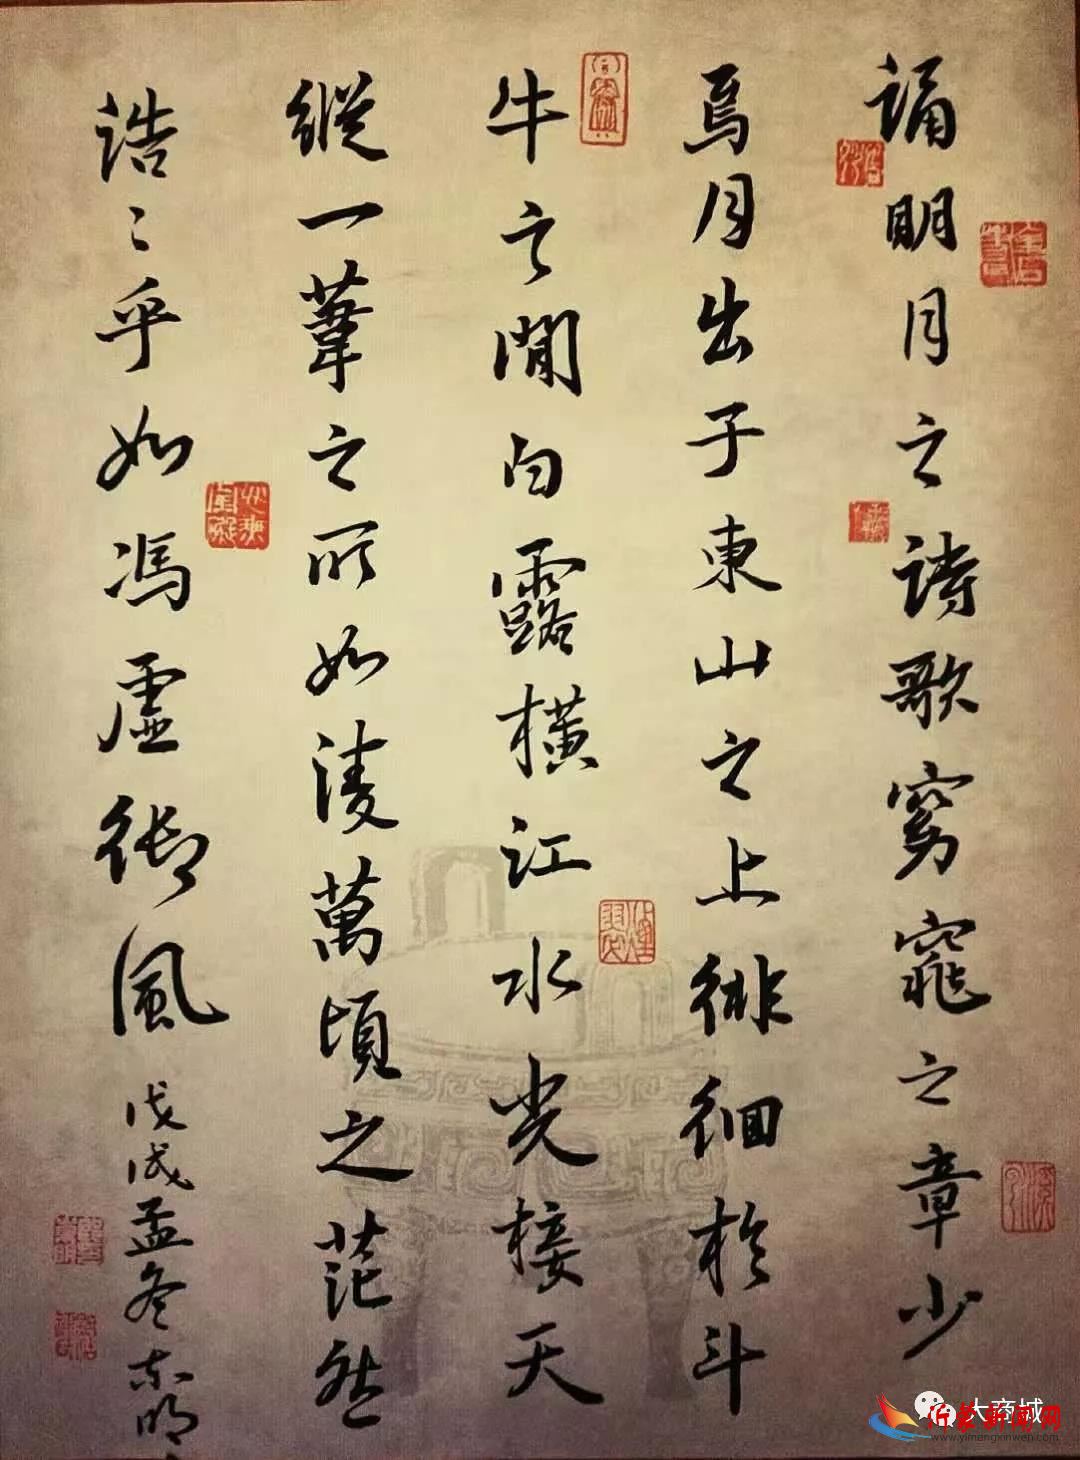 誦明月之詩歌窈窕之章少
焉月出于東山之上徘徊於斗
牛之間白露橫江水光接天
縱一葦之所如凌萬頃之茫然
浩〻乎如馮虛御風
戊戌孟冬
大商城
沂蒙新闻网
www.yimengxinwen.com